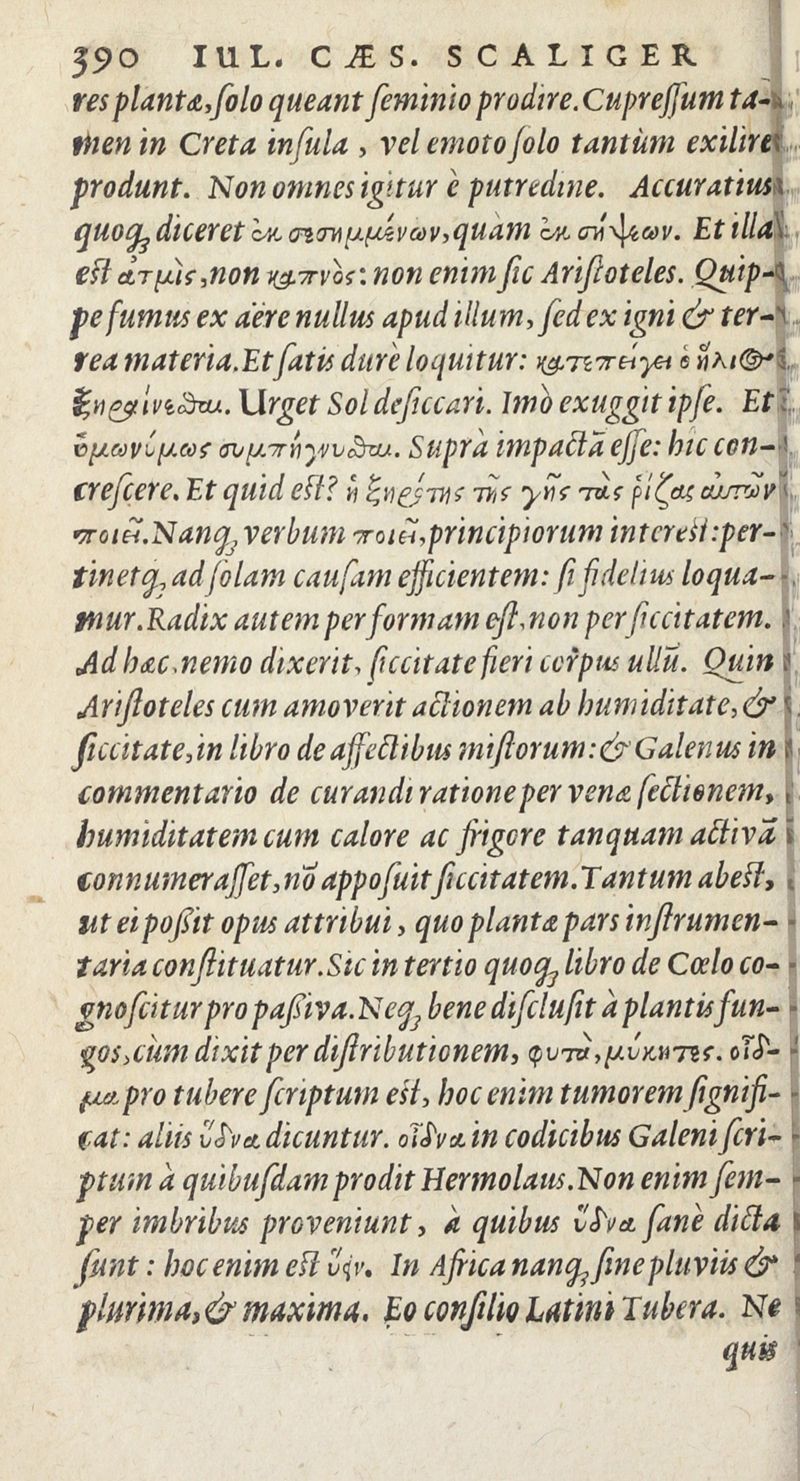 390 IUL. CÆS. SCALIGER
res plantæ, ſolo queant ſeminio prodire. Cupreſſum ta-
men in Creta inſula, vel emoto ſolo tantùm exilire
produnt. Non omnes igitur è putredine. Accuratius
quoq; diceret ἐκ σεσημμένων, quàm ἐκ σήψεων. Et illa
eſt ἀτμὶς, non καπνὸς: non enim ſic Ariſtoteles. Quip-
pe fumus ex aëre nullus apud illum, ſed ex igni & ter-
rea materia. Et ſatis durè loquitur: κατεπείγει ὁ ἥλιος
ξηραίνεσθαι. Urget Sol deſiccari. Imò exuggit ipſe. Et
ὁμωνύμως συμπήγνυσθαι. Suprà impactā eſſe: hîc con-
creſcere. Et quid eſt? ἡ ξηρότης τῆς γῆς τὰς ῥίζας αὐτῶν
ποιεῖ. Nanq; verbum ποιεῖ, principiorum intereſt: per-
tinetq; ad ſolam cauſam efficientem: ſi fidelius loqua-
mur. Radix autem per formam eſt, non per ſiccitatem.
Ad hæc, nemo dixerit, ſiccitate fieri corpus ullū. Quin
Ariſtoteles cum amoverit actionem ab humiditate, &
ſiccitate, in libro de affectibus miſtorum: & Galenus in
commentario de curandi ratione per venæ ſectionem,
humiditatem cum calore ac frigore tanquam activā
connumeraſſet, nō appoſuit ſiccitatem. Tantum abeſt,
ut ei poßit opus attribui, quo plantæ pars inſtrumen-
taria conſtituatur. Sic in tertio quoq; libro de Cœlo co-
gnoſcitur pro paßiva. Neq; bene diſcluſit à plantis fun-
gos, cùm dixit per diſtributionem, φυτὰ, μύκητες. οἶδ-
μα pro tubere ſcriptum eſt, hoc enim tumorem ſignifi-
cat: aliis ὕδνα dicuntur. οἶδνα in codicibus Galeni ſcri-
ptum à quibuſdam prodit Hermolaus. Non enim ſem-
per imbribus proveniunt, à quibus ὕδνα ſanè dicta
ſunt: hoc enim eſt ὕειν. In Africa nanq; ſine pluviis &
plurima, & maxima. Eo conſilio Latini Tubera. Ne
quis